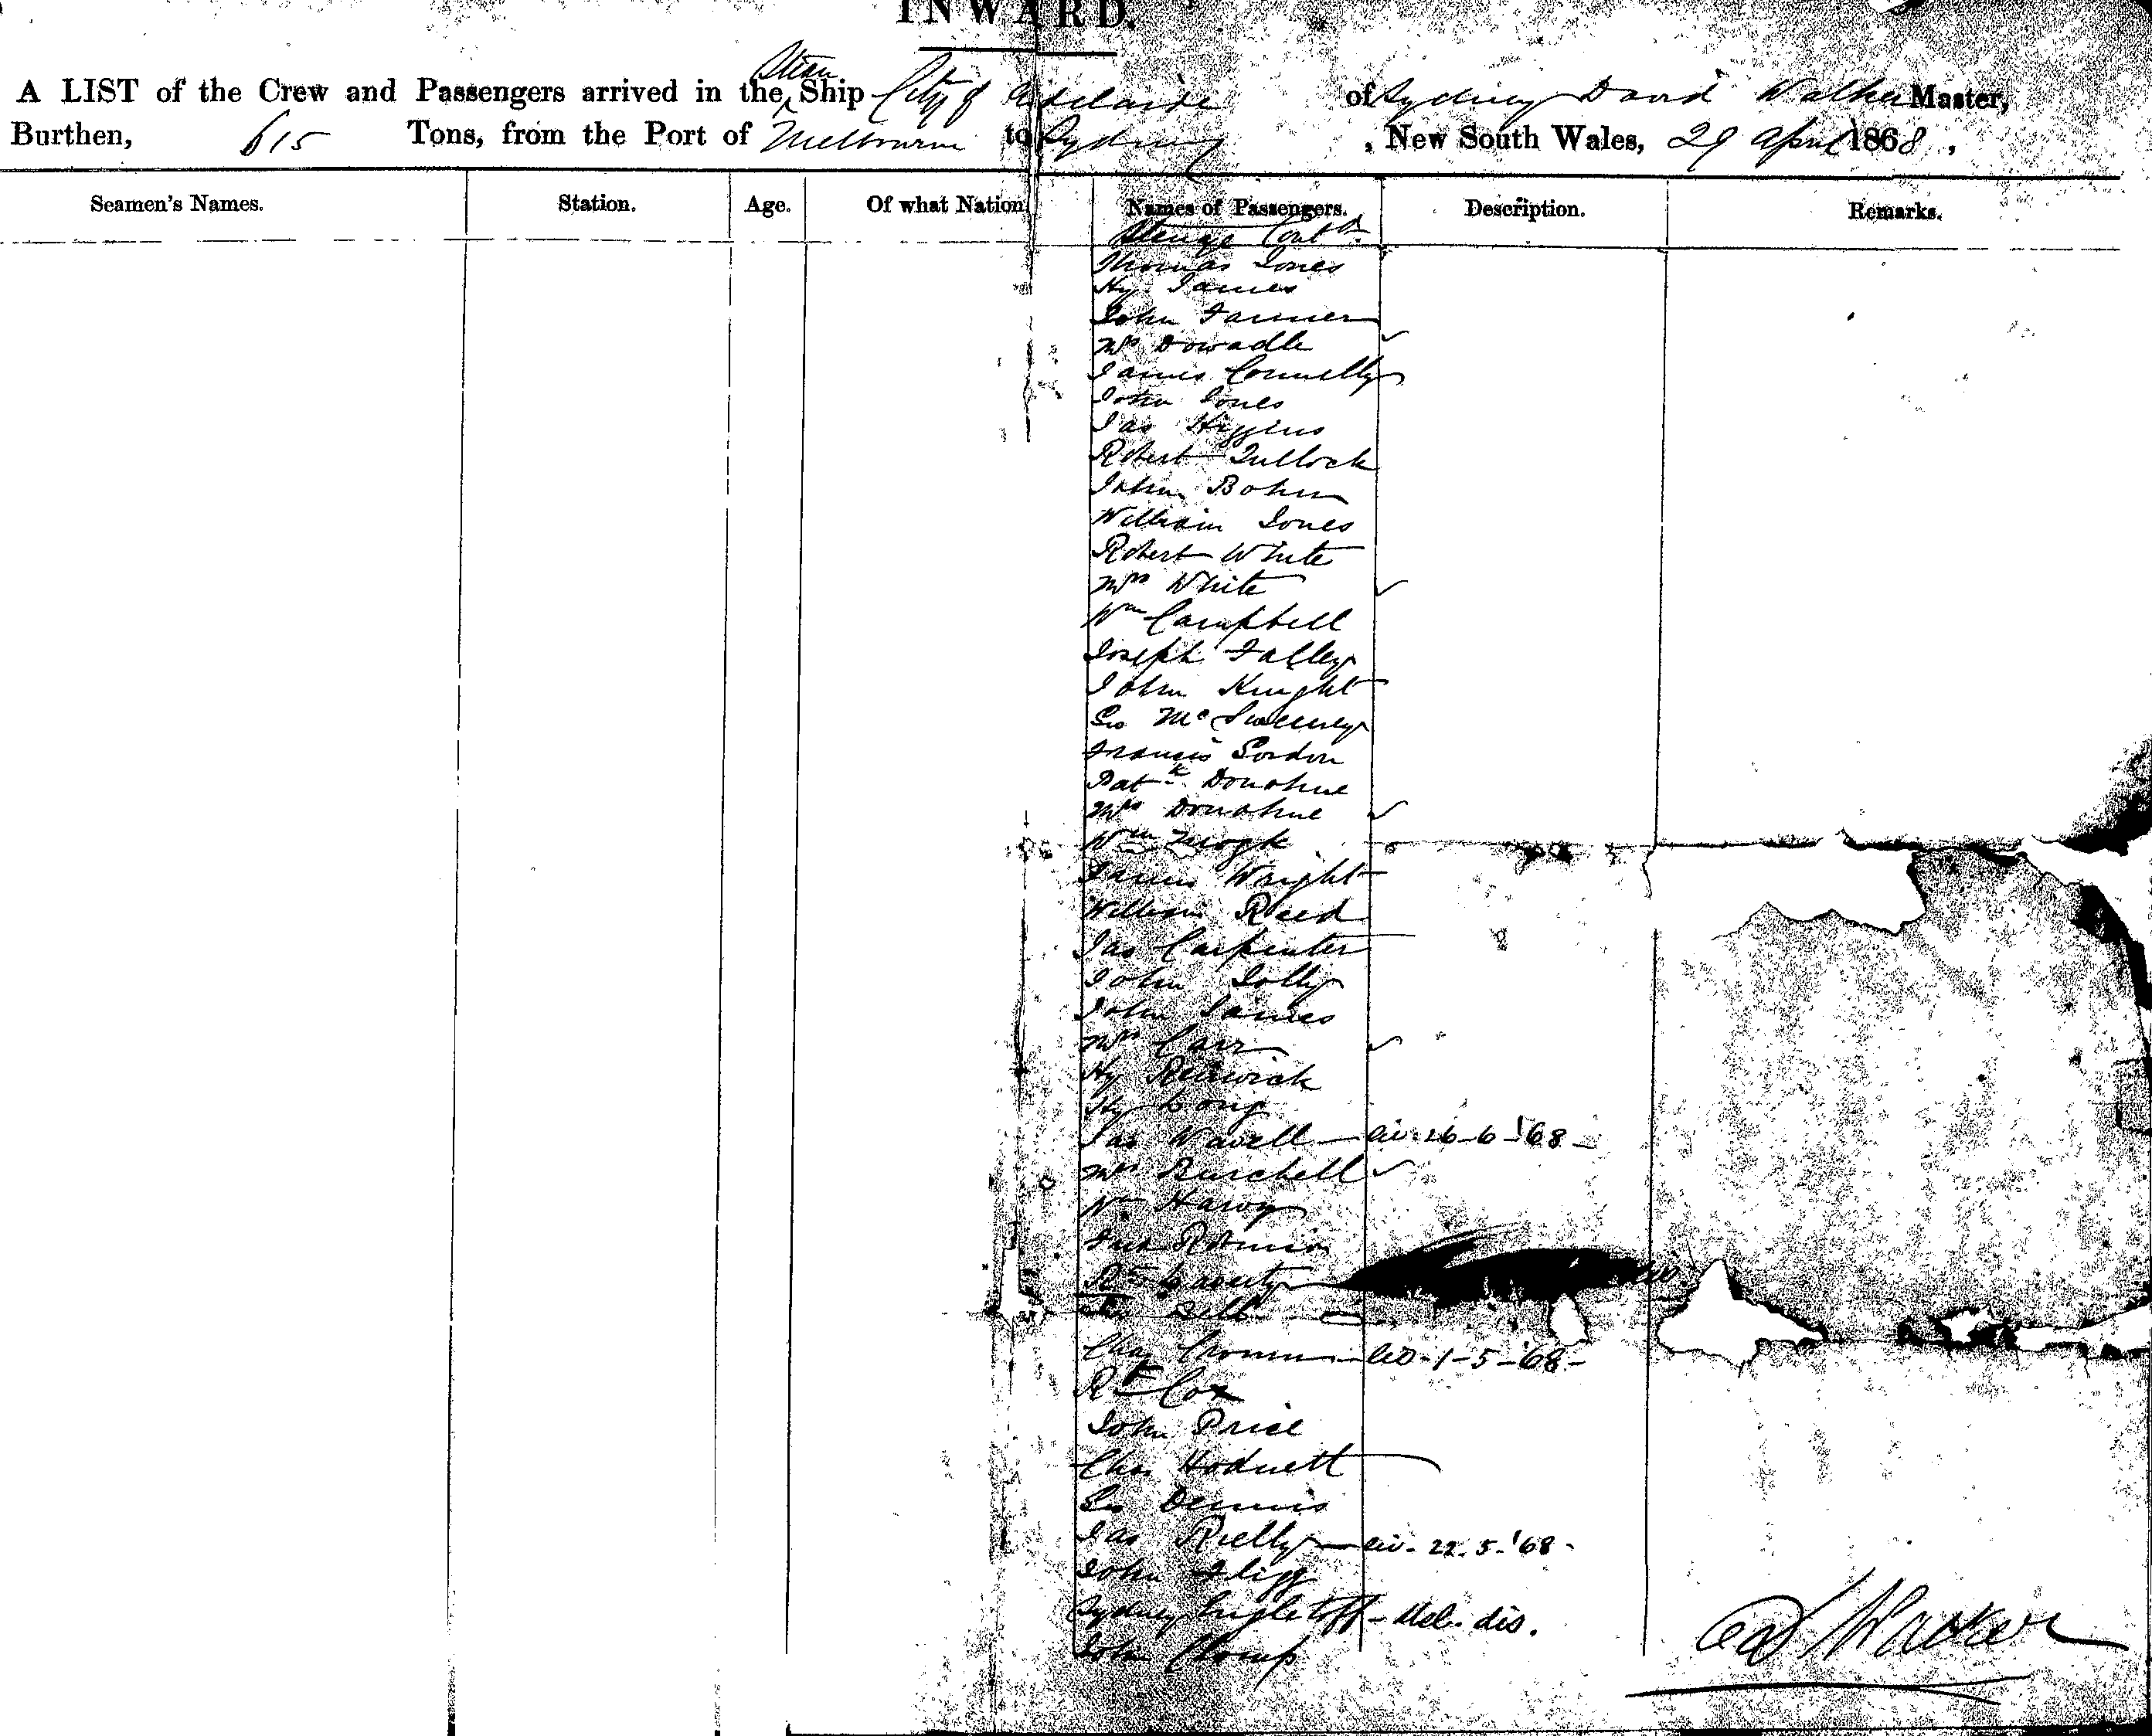 INWARD.
A LIST of the Crew and Passengers arrived in the Steam Ship City of Adelaide of Sydney David Walker Master,
Burthen, 615 Tons, from the Port of Melbourne to Sydney, New South Wales, 29 April 1868.
Seamen's Names. Station. Age. Of what Nation Names of Passengers. Description. Remarks.
Steerage Contd.
Thomas Jones
Hy James
John Farmer
Mrs Dowadle
James Connelly
John Jones
Jas Higgins
Robert Tullock
John Bohn
William Jones
Robert White
Mrs White
Wm Campbell
Joseph Falley
John Knight
Geo McSweeney
Francis Gordon
Patk Donohue
Mrs Donohue
Wm
James Wright
William Reed
Jas Carpenter
John Jolly
John James
Mrs Carr
Hy Renwick
Hy Long
Jas 16-6-'68-
Mrs Burchell
Wm Harvy
Robinson
Rt
Bell
Chas Cronin 1-5-'68-
Rt Cox
John Price
Chas Hodnett
Geo Dennis
Jas Rielly 22.5-'68-
John
Sydney dis.
John
Walker